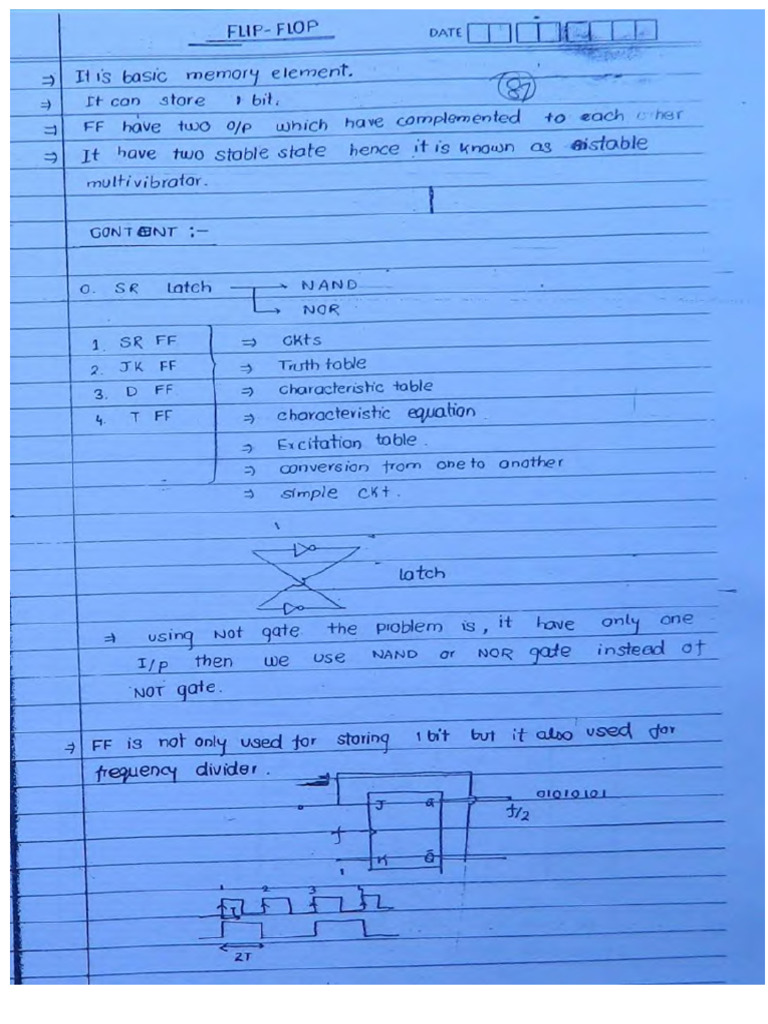 FLIP-FLOP
DATE
87
⇒ It is basic memory element.
⇒ It can store 1 bit.
⇒ FF have two o/p which have complemented to each other
⇒ It have two stable state hence it is known as Bistable
multivibrator.
CONTENT :-
0. SR latch → NAND
→ NOR
1. SR FF ⇒ Ckts
2. JK FF ⇒ Truth table
3. D FF ⇒ characteristic table
4. T FF ⇒ characteristic equation
⇒ Excitation table.
⇒ conversion from one to another
⇒ simple ckt.
latch
⇒ using Not gate the problem is, it have only one
I/p then we use NAND or NOR gate instead of
NOT gate.
⇒ FF is not only used for storing 1 bit but it also used for
frequency divider.
J Q 01010101
f f/2
1 K Q̄
1 2 3 4
T
2T